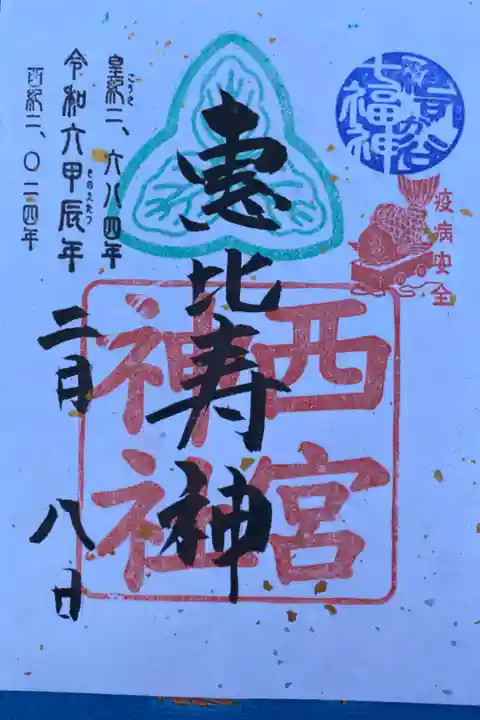 七福神
疫病
西宮
神社
恵比寿神
皇紀二、六八四年
令和六甲辰年
きのえたつ
西紀二、〇二四年
二月
八日